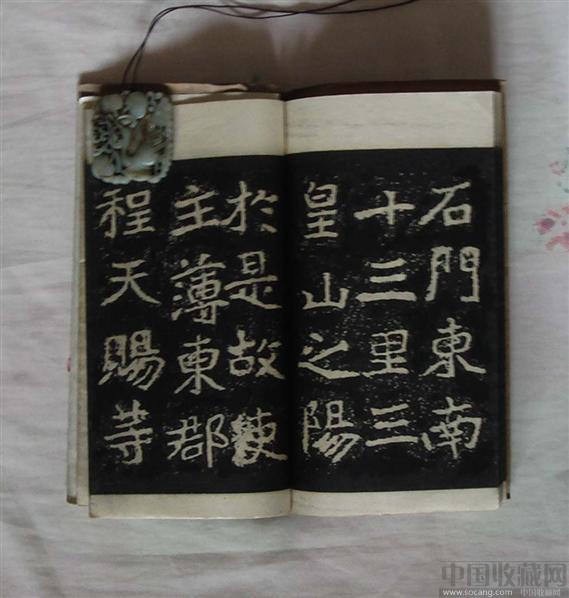 石門東南
十三里三
皇山之陽
於是故
主薄東郡
程天賜等
中国收藏网
www.socang.com 中国收藏网